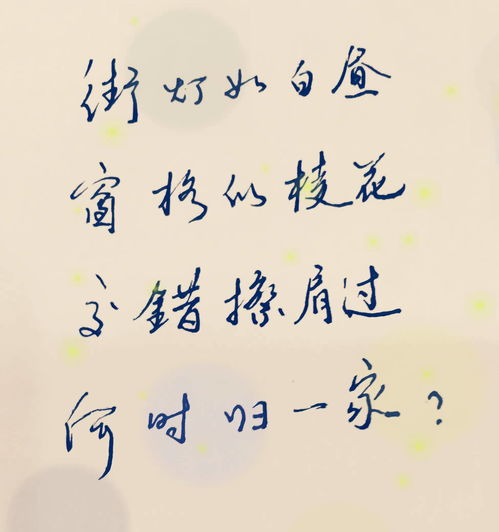 街灯如白昼
窗格似棱花
交错擦肩过
何时归一家?